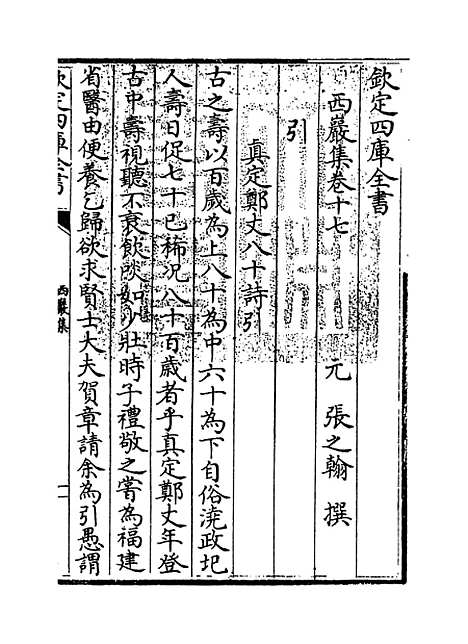 欽定四庫全書
西巖集卷十七
元 張之翰 撰
引
真定鄭丈八十詩引
古之壽以百歲為上八十為中六十為下自俗澆政圯
人壽日促七十已稀况八十百歲者乎真定鄭丈年登
古中壽視聽不衰飲啖如少壯時子禮敬之嘗為福建
省醫由便養乞歸欲求賢士大夫賀章請余為引愚謂
欽定四庫全書
西巖集
一